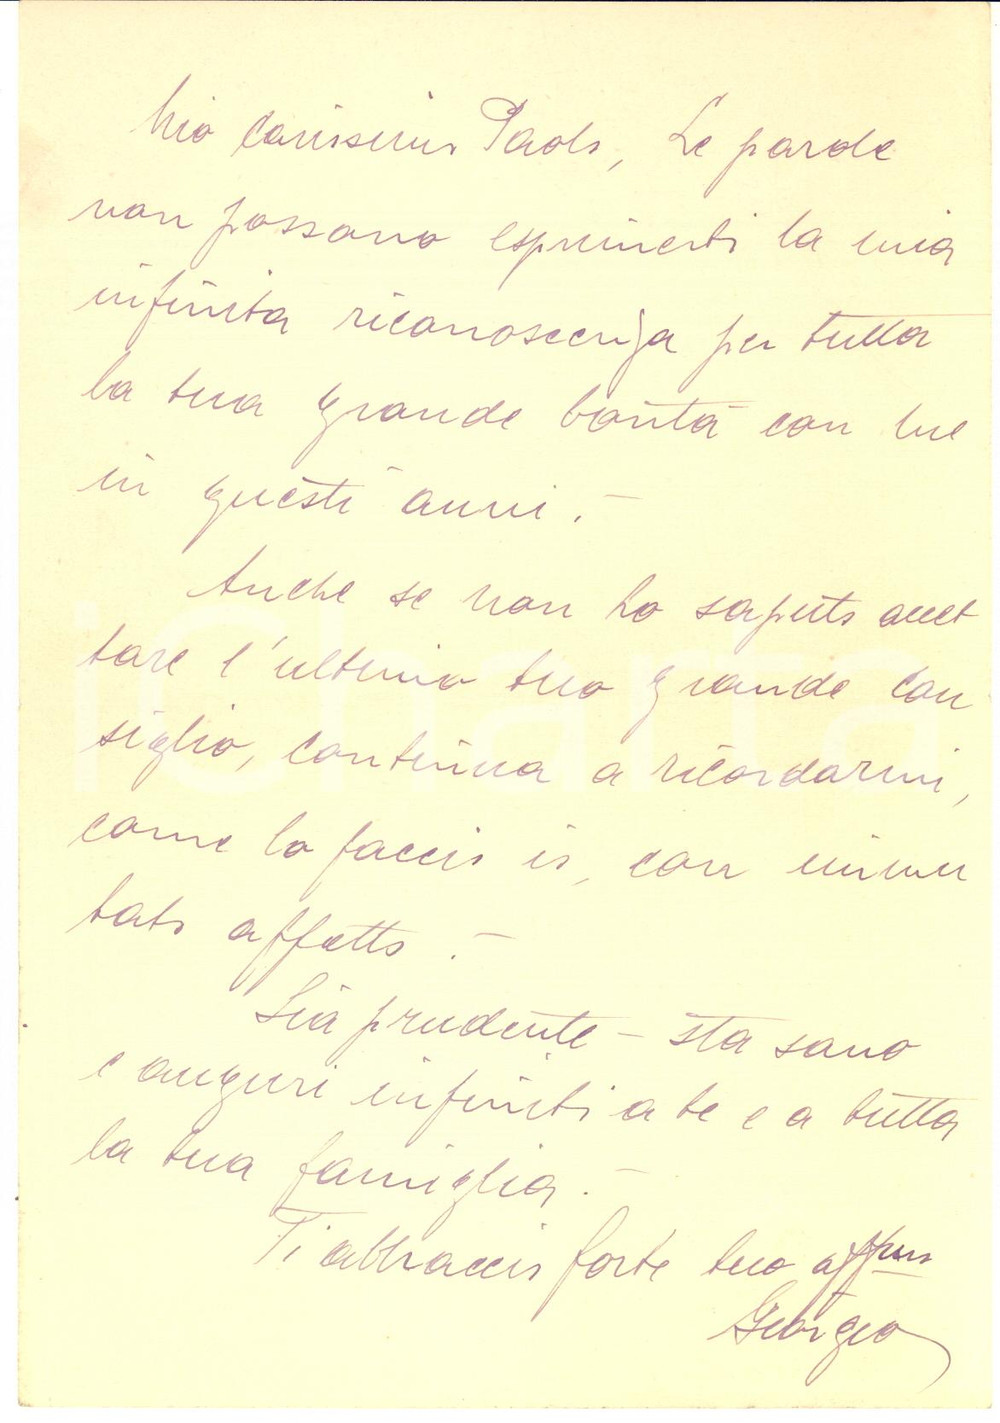 Mio carissimo Paolo, Le parole
non possono esprimerti la mia
infinita riconoscenza per tutta
la tua grande bontà con me
in questi anni. -
Anche se non ho saputo accet
tare l'ultimo tuo grande con
siglio, continua a ricordarmi,
come lo faccio io, con immu
tato affetto. -
Sia prudente - sta sano
e auguri infiniti a te e a tutta
la tua famiglia. -
Ti abbraccio forte tuo aff.mo
Giorgio